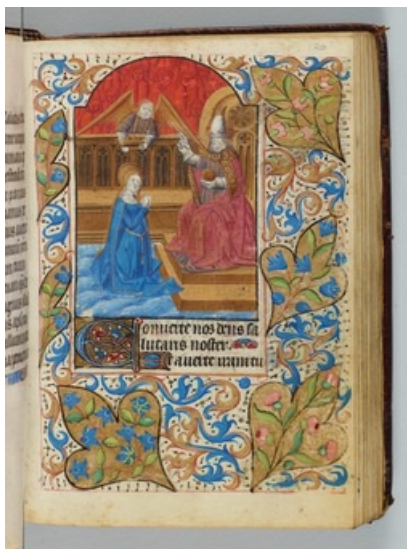 Converte nos deus sa
lutaris noster.
Et averte iram tu